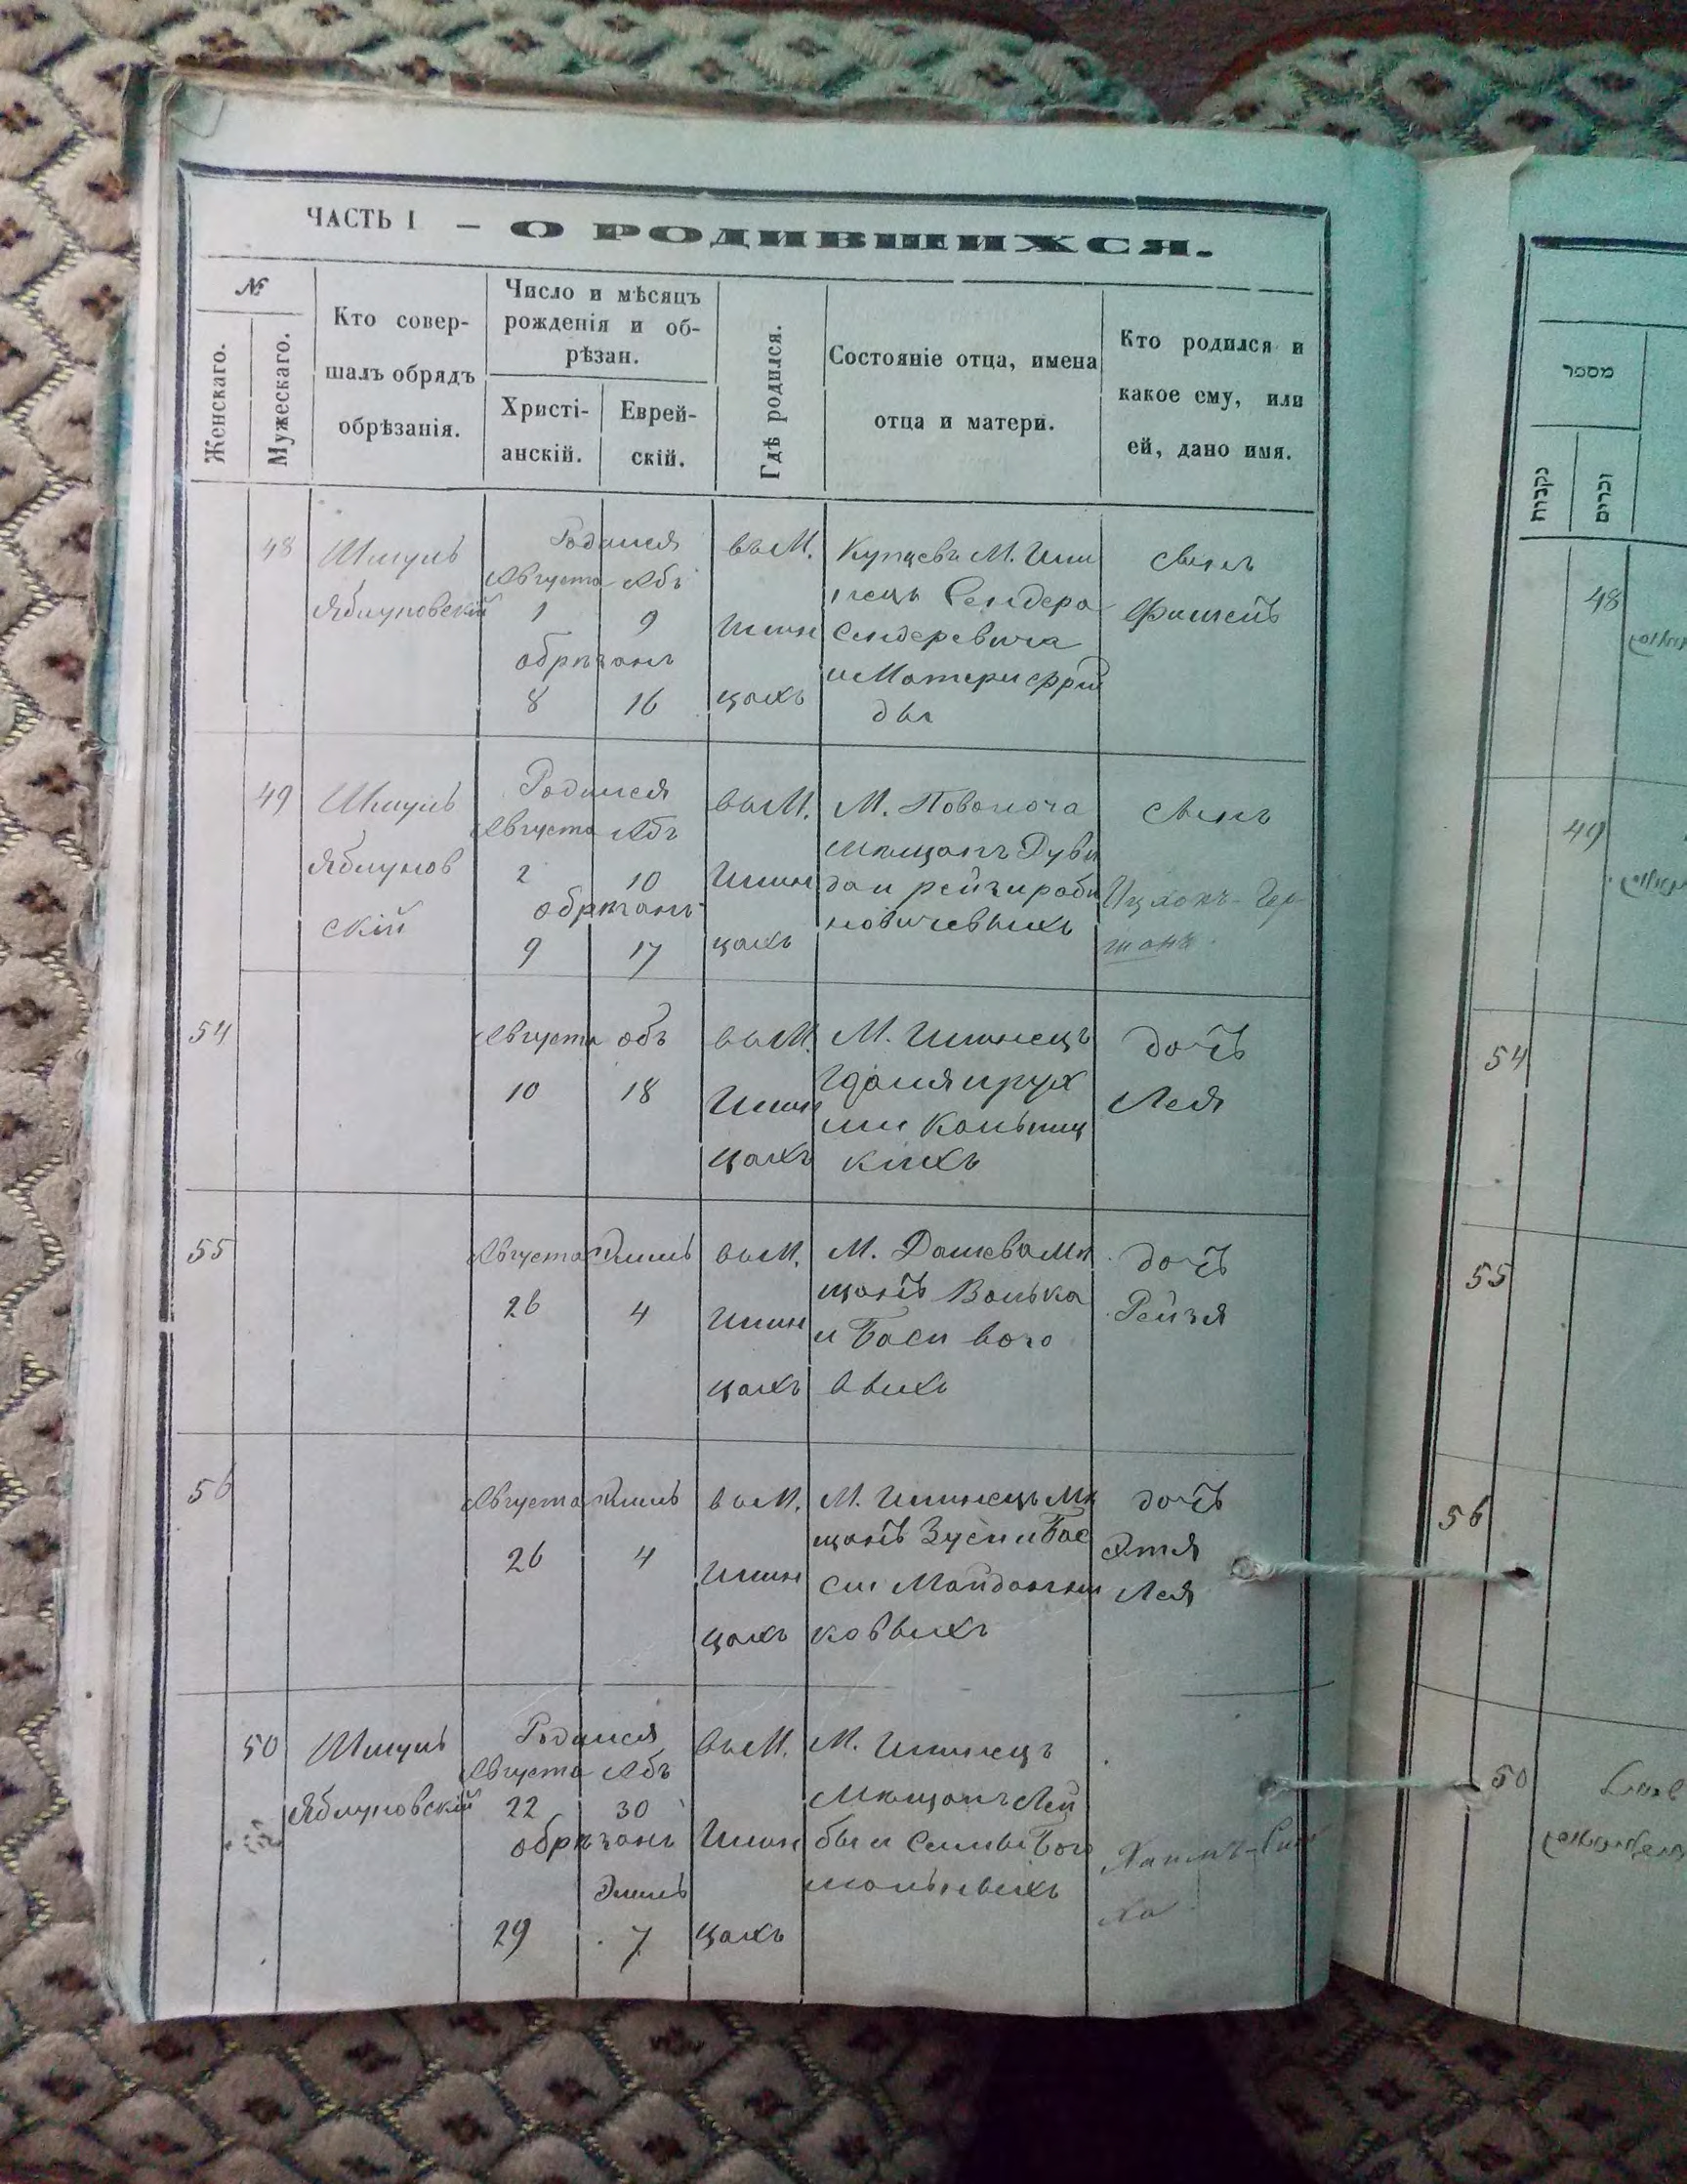 ЧАСТЬ I — О РОДИВШИХСЯ.
№
Женскаго.
Мужескаго.
Кто совер-
шалъ обрядъ
обрѣзанія.
Число и мѣсяцъ
рожденія и об-
рѣзан.
Христі-
анскій.
Еврей-
скій.
Гдѣ родился.
Состояніе отца, имена
отца и матери.
Кто родился и
какое ему, или
ей, дано имя.
48
Шмуль
Яблуновскій
Родился
Августа Абъ
1 9
обрѣзанъ
8 16
въ М.
Илин
цахъ
Купцевъ М. Или
нецъ Сендера
Сендеровича
и Матери Фрей
ды
Сынъ
Фишель
49
Шмуль
Яблунов
скій
Родился
Августа Абъ
2 10
обрѣзанъ
9 17
въ М.
Илин
цахъ
М. Поволоча
мѣщанъ Дуви
да и рейзи раби
новичевыхъ
Сынъ
Ицхокъ-Гер
шонъ
54
Августа абъ
10 18
въ М.
Илин
цахъ
М. Илинецъ
кихъ
дочь
Лея
55
Августа Элиль
26 4
въ М.
Илин
цахъ
М. Дашева мѣ
щанъ Волька
и Баси
выхъ
дочь
Рейзя
56
Августа Элиль
26 4
въ М.
Илин
цахъ
М. Илинецъ мѣ
щанъ Зуси и Бас
си
ковыхъ
дочь
Этля
Лея
50
Шмуль
Яблуновскій
Родился
Августа Абъ
22 30
обрѣзанъ
Элиль
29 7
въ М.
Илин
цахъ
М. Илинецъ
мѣщанъ Лей
бы и Симы Бого
мольныхъ
ха
מספר
נקבות
זכרים
48
49
54
55
56
50